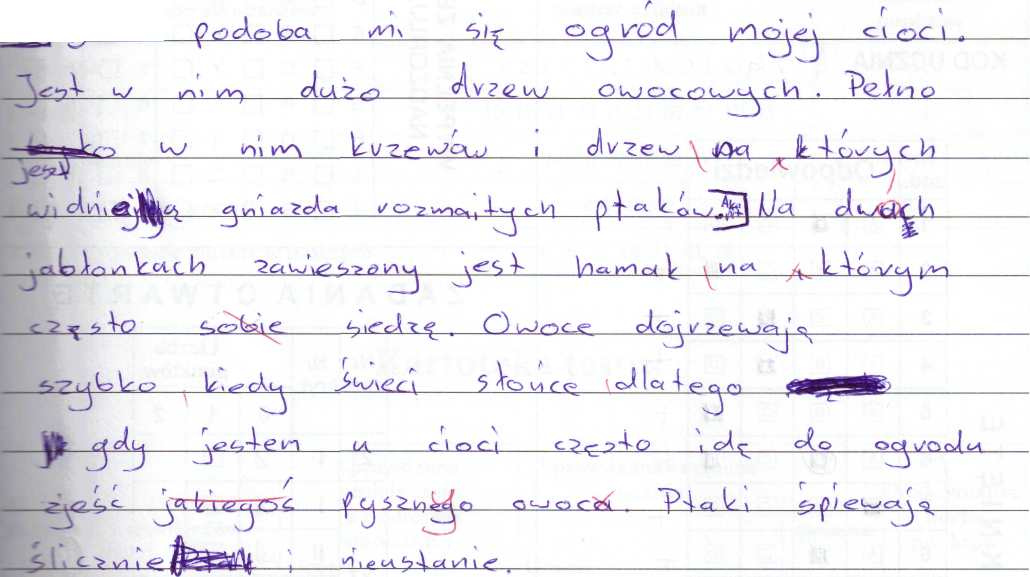 podoba mi się ogród mojej cioci.
Jest w nim dużo drzew owocowych. Pełno
jest w nim krzewów i drzew na których
widnieją gniazda rozmaitych ptaków. Na dwóch
jabłonkach zawieszony jest hamak na którym
często sobie siedzę. Owoce dojrzewają
szybko kiedy świeci słońce dlatego
gdy jestem u cioci często idę do ogrodu
zjeść jakiegoś pysznego owoca. Ptaki śpiewają
ślicznie i nieustanie.